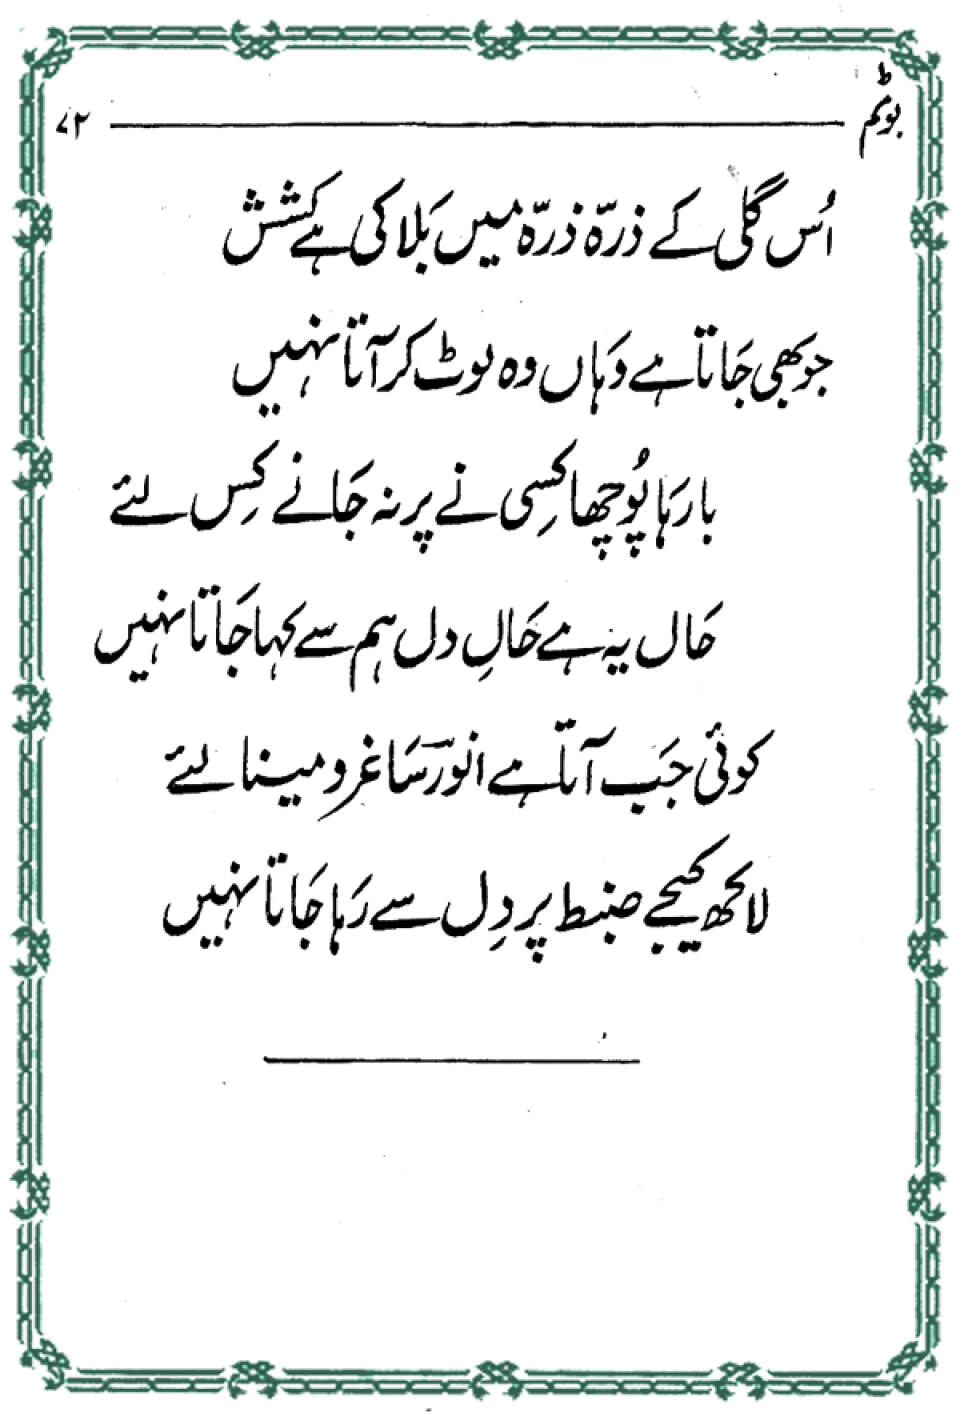 بوٹم ۷۲
اُس گلی کے ذرّہ ذرّہ میں بَلا کی ہے کشش
جو بھی جَاتا ہے وَہاں وہ لوٹ کر آتا نہیں
بارہَا پُوچھا کسِی نے پر نہ جَانے کِس لئے
حَال یہ ہے حَالِ دل ہم سے کہا جَاتا نہیں
کوئی جَب آتا ہے انورؔ سَاغر و مینا لئے
لاکھ کیجے ضبط پر دِل سے رَہا جَاتا نہیں